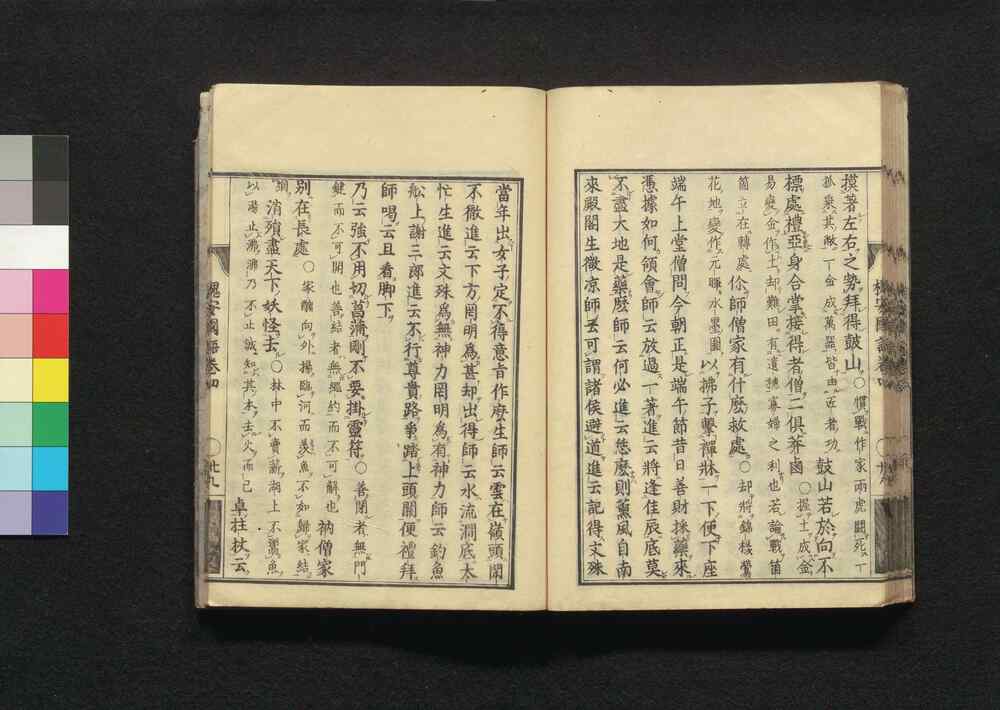 摸著左右之勢拜得鼓山○慣戰作家兩虎鬪死
孤裘其散一金成萬器皆由匠者功 鼓山若於向不
標處禮亞身合掌接得者僧二俱莽鹵○握土成金
易變金作土却難田有遺穗寡婦之利也若論戰箇
箇立在轉處 你師僧家有什麼救處○却將錦樣鶯
花地變作元暉水墨圖 以拂子擊禪牀一下便下座
端午上堂僧問今朝正是端午節昔日善財採藥來
憑據如何領會師云放過一著進云將逢佳辰底莫
不盡大地是藥麼師云何必進云恁麼則薰風自南
來殿閣生微凉師云可謂諸侯避道進云記得文殊
當年出女子定不得意旨作麼生師云雲在嶺頭閑
不徹進云下方罔明爲甚却出得師云水流澗底太
忙生進云文殊爲無神力罔明爲有神力師云釣魚
舩上謝三郎進云不行尊貴路爭踏上頭關便禮拜
師喝云且看脚下
乃云強不用切菖蒲剛不要掛靈符○善閉者無門
鍵而不可開也善結者無繩約而不可解也 衲僧家
別在長處○家醜向外揚臨河而羨魚不如歸家結
網 消殞盡天下妖怪去○林中不賣薪湖上不鬻魚
以湯止沸沸乃不止誠知其本去火而已 卓拄杖云
槐安國語卷四
廿九